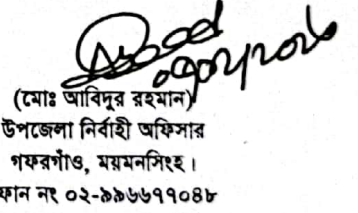 (মোঃ আবিদুর রহমান)
উপজেলা নির্বাহী অফিসার
গফরগাঁও, ময়মনসিংহ।
ফোন নং ০২-৯৯৬৬৭৭০৪৮